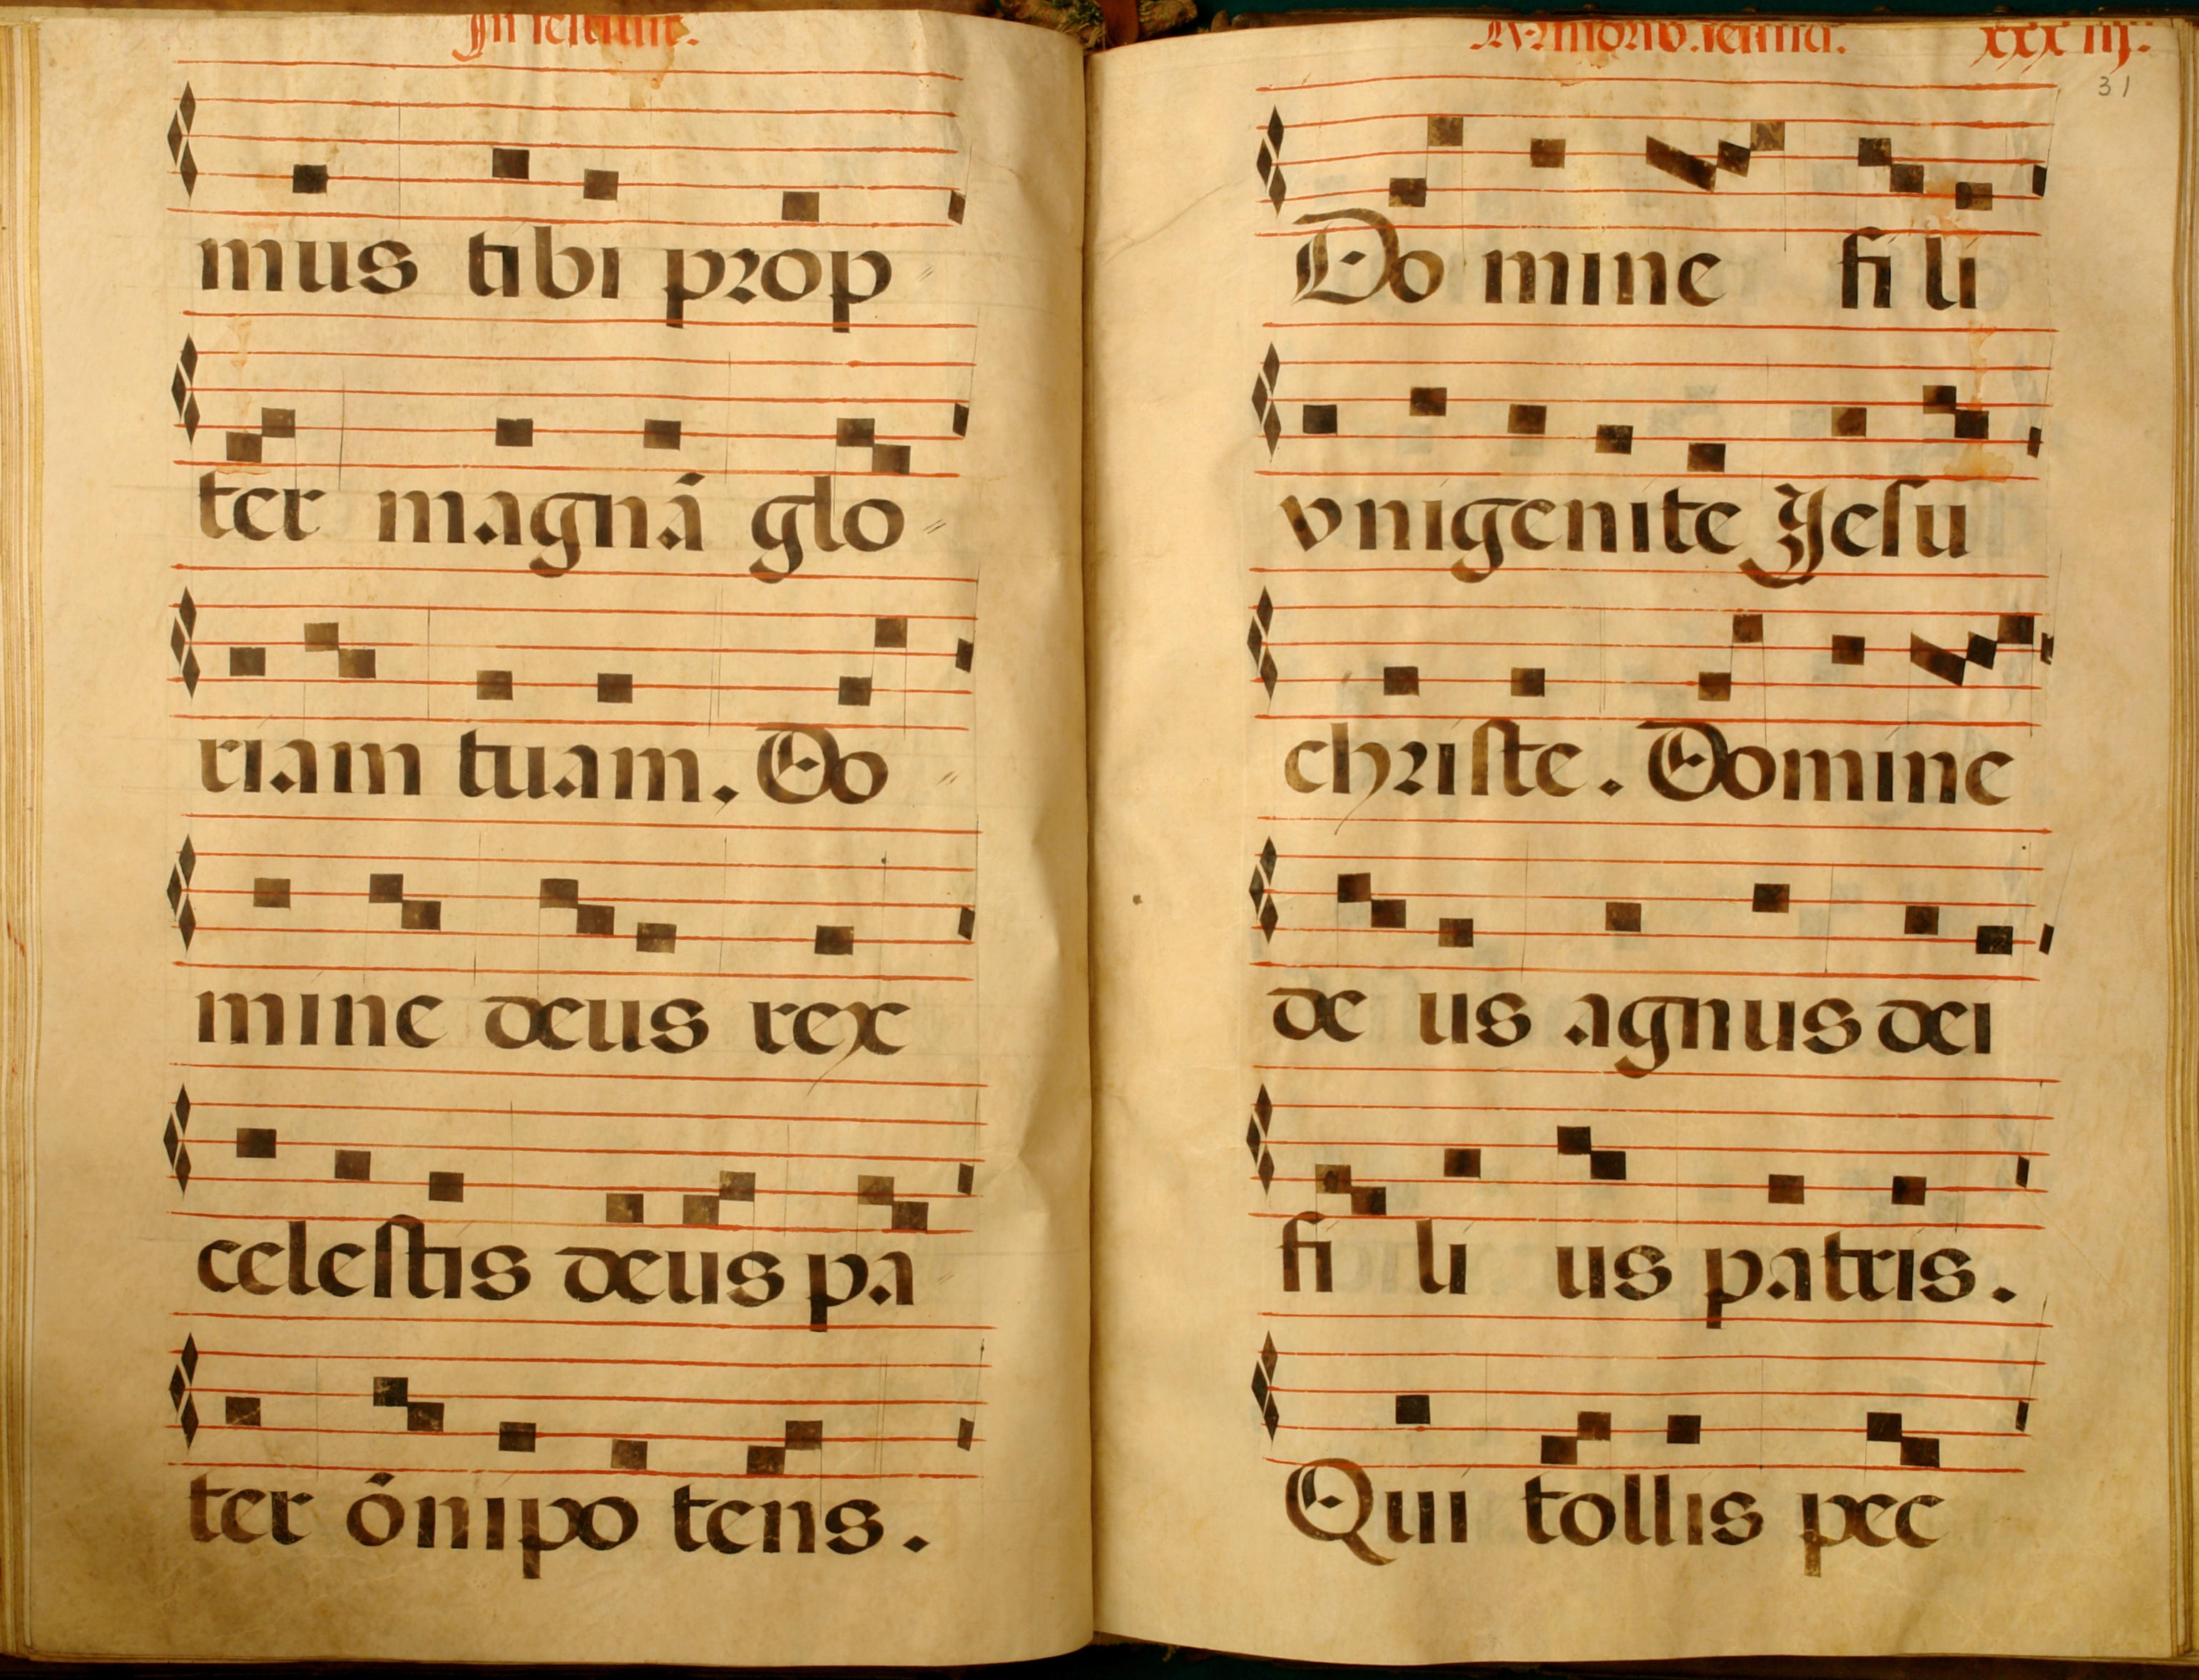 In
mus tibi prop
ter magnā glo
riam tuam. Do
mine deus rex
celestis deus pa
ter ōnipo tens.
xxx iiij.
31
Do mine fi li
vnigenite Jesu
christe. Domine
de us agnus dei
fi li us patris.
Qui tollis pec